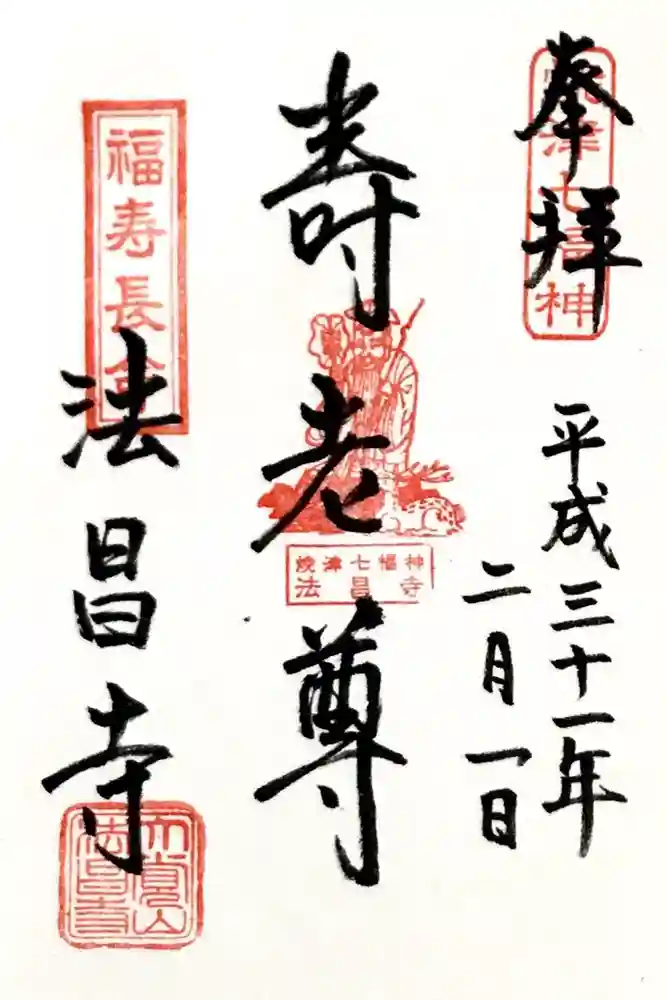 奉拝
焼津七福神
平成三十一年
二月一日
寿老尊
焼津七福神
法昌寺
福寿長命
法昌寺
大覚山
法昌寺